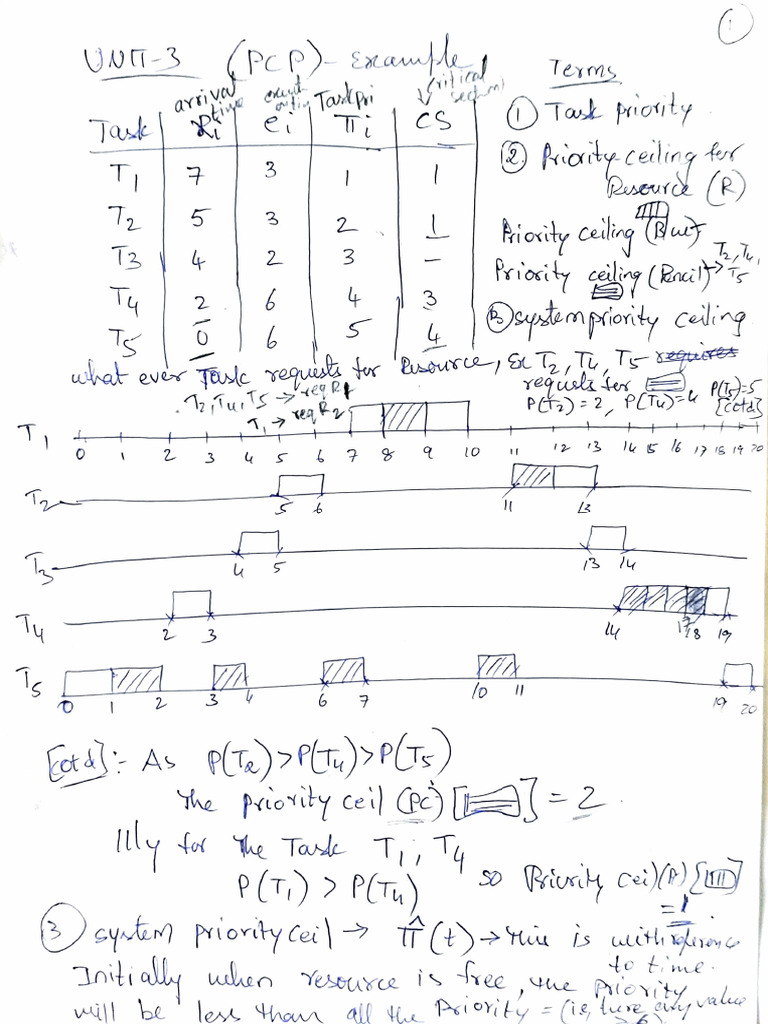 1
UNIT-3 (PCP) - Example
Task | arrival time Ri | execut ei | Task pri πi | critical section CS
T1 7 3 1 1
T2 5 3 2 1
T3 4 2 3 -
T4 2 6 4 3
T5 0 6 5 4
Terms
① Task priority
② Priority ceiling for
Resource (R)
Priority ceiling (Blue)
Priority ceiling (Pencil) → T2, T4, T5
③ system priority ceiling
what ever Task requests for Resource, Ex T2, T4, T5 requires
requests for
T2, T4, T5 → req R1
T1 → req R2
P(T2) = 2, P(T4) = 4 P(T5) = 5
[cotd]
T1
0 1 2 3 4 5 6 7 8 9 10 11 12 13 14 15 16 17 18 19 20
T2
5 6 11 13
T3
4 5 13 14
T4
2 3 14 17 18 19
T5
0 1 2 3 4 6 7 10 11 19 20
[cotd] :- As P(T2) > P(T4) > P(T5)
The priority ceil (PC) [ ] = 2
|||ly for the Task T1, T4
P(T1) > P(T4) so Priority ceil (R) [ ]
= 1.
③ system priority ceil → π̂(t) → this is with reference
to time.
Initially when resource is free, the priority
will be less than all the Priority = (ie, value